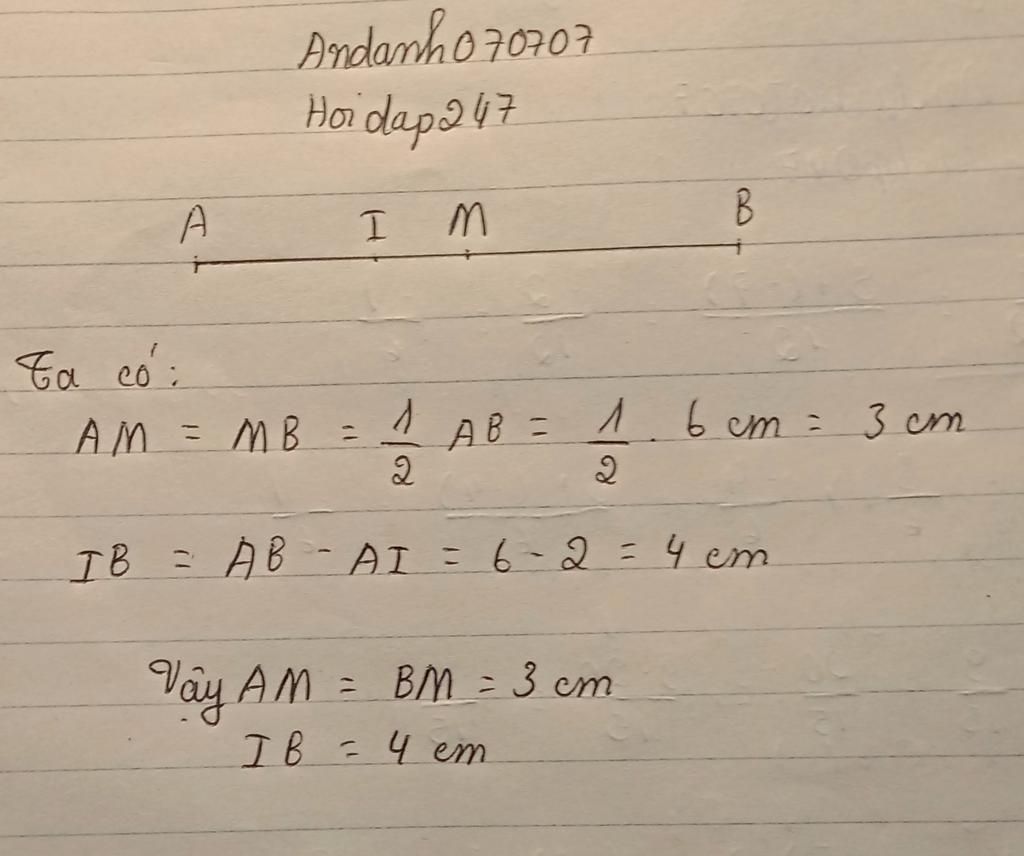 Andanh070707
Hoidap247
A I M B
Ta có:
AM = MB = 1/2 AB = 1/2 . 6 cm = 3 cm
IB = AB - AI = 6 - 2 = 4 cm
Vậy AM = BM = 3 cm
IB = 4 cm